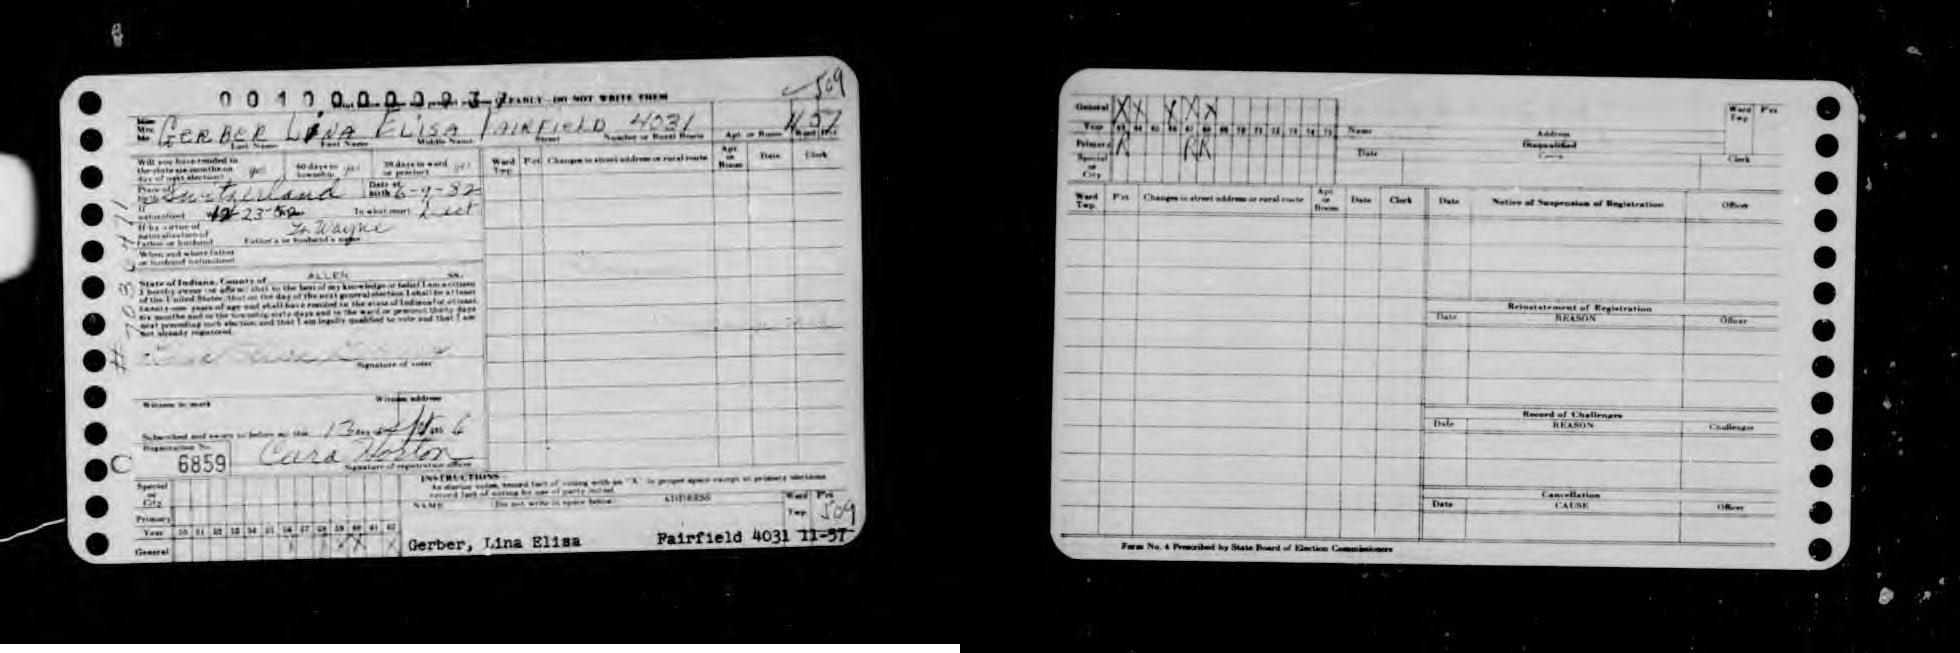 509
CLEARLY DO NOT WRITE THEM
GERBER LINA ELISA FAIRFIELD 4031
Last Name First Name Middle Name Street Number or Rural Route Apt. or Room Ward Pct
Will you have resided in
the state six months on
day of next election? yes 60 days in
township yes 30 days in ward
or precinct yes
Ward
Twp. Pct Changes in street address or rural route Apt
or
Room Date Clerk
Place of
birth Switzerland Date of
birth 6-9-82
If
naturalized 23-52 In what court
If by virtue of
naturalization of
father or husband Ft Wayne
Father's or husband's name
When and where father
or husband naturalized
State of Indiana, County of ALLEN SS.
I hereby swear (or affirm) that to the best of my knowledge or belief I am a citizen
of the United States; that on the day of the next general election I shall be at least
twenty-one years of age and shall have resided in the state of Indiana for at least
six months and in the township sixty days and in the ward or precinct thirty days
next preceding such election and that I am legally qualified to vote and that I am
not already registered.
Signature of voter
Witness to mark Witness address
Subscribed and sworn to before me this 13 day of Sept
Registration No.
C 6859
Cara Horton
Signature of registration officer
INSTRUCTIONS
At election votes, record fact of voting with an "X" in proper space except at primary elections
record fact of voting by use of party initial.
NAME (Do not write in space below) ADDRESS Ward
Twp. Pct
509
Special
or
City
Primary
Year 50 51 52 53 54 55 56 57 58 59 60 61 62
General X X X
Gerber, Lina Elisa Fairfield 4031 11-57
General X X X X X
Year 63 64 65 66 67 68 69 70 71 72 73 74 75
Primary R R R
Special
or
City
Name Address
Disqualified
Date Cause Clerk
Ward
Twp. Pct
Ward
Twp. Pct Changes in street address or rural route Apt
or
Room Date Clerk
Date Notice of Suspension of Registration Officer
Reinstatement of Registration
Date REASON Officer
Record of Challenges
Date REASON Challenger
Cancellation
Date CAUSE Officer
Form No. 4 Prescribed by State Board of Election Commissioners